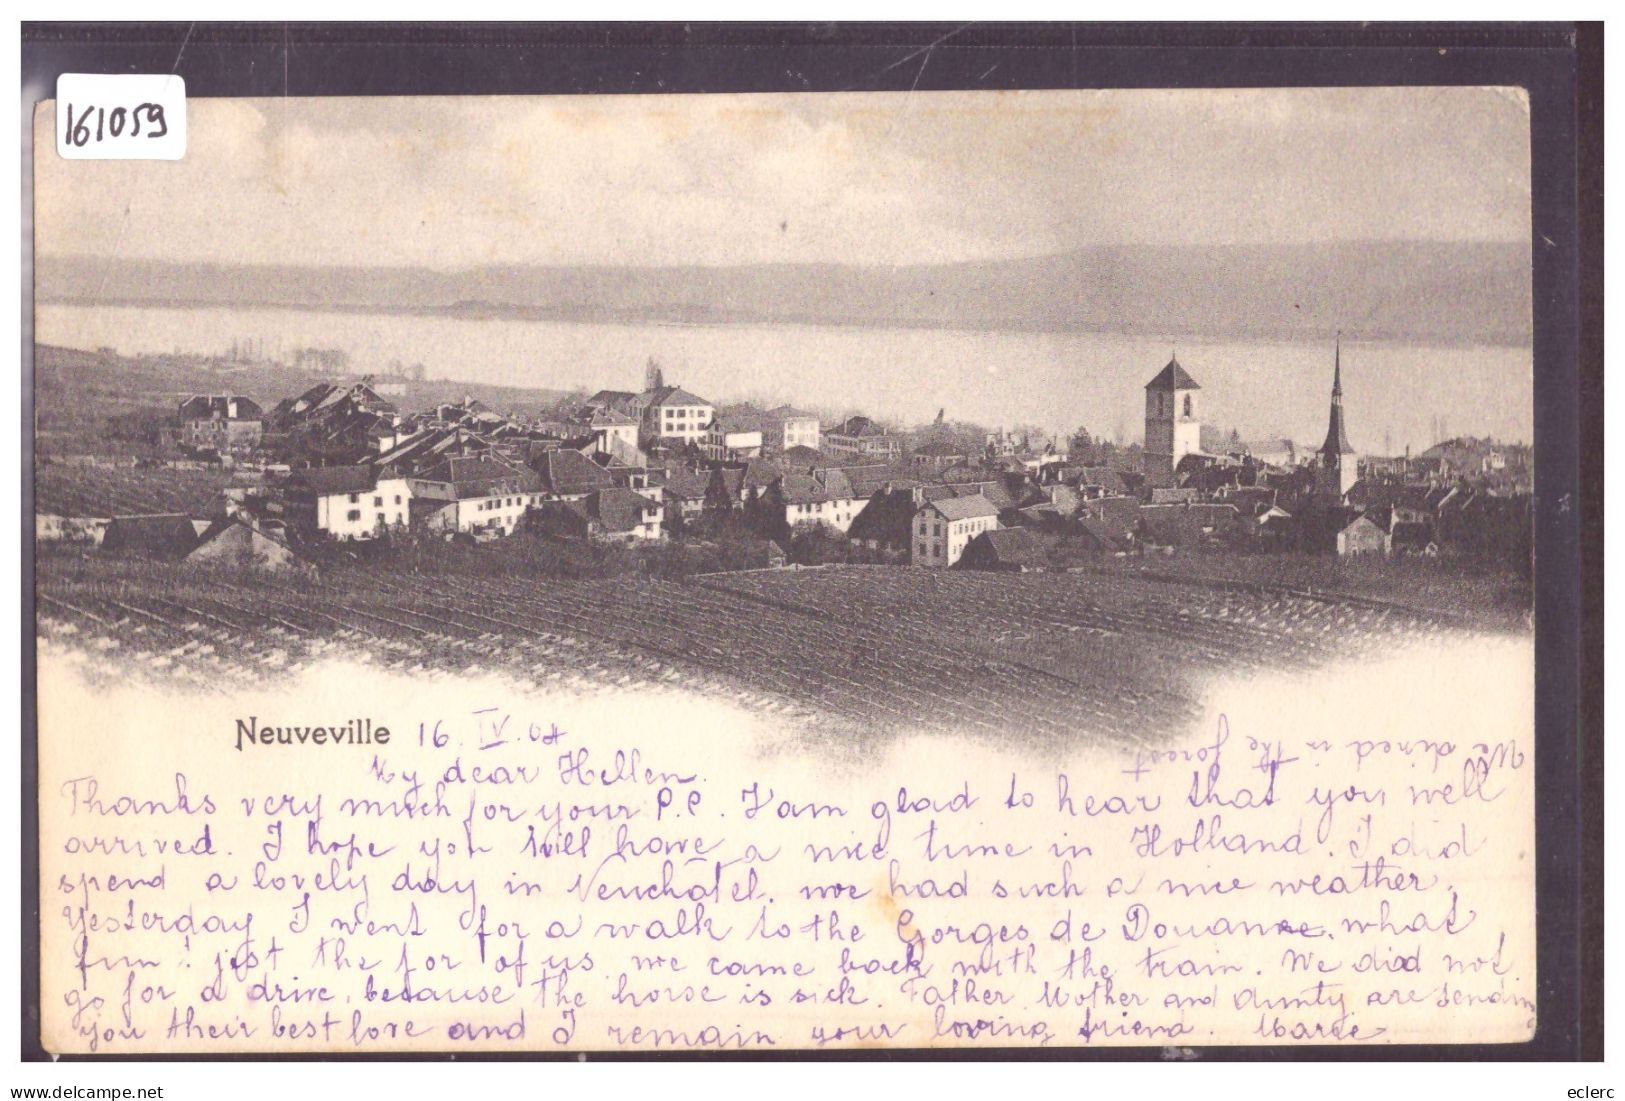 161059
Neuveville 16. IV. 04
We dined in the forest.
My dear Hellen.
Thanks very much for your P.C. I'am glad to hear that you well
arrived. I hope you will have a nice time in Holland. I did
spend a lovely day in Neuchâtel. we had such a nice weather.
Yesterday I went for a walk to the Gorges de Douanne. what
fun! just the for of us. we came back with the train. We did not
go for a drive, because the horse is sick. Father Mother and Aunty are sending
you their best love and I remain your loving friend. Marie.
eclerc